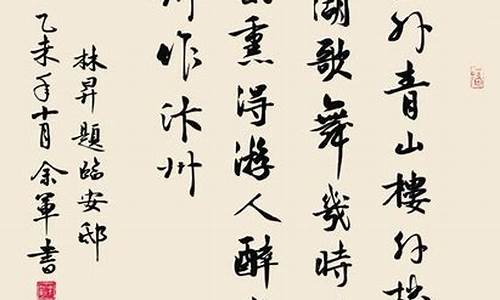 外青山樓外
湖歌舞幾時
熏得游人醉
作汴州
林昇題臨安邸
乙未年十月余軍書